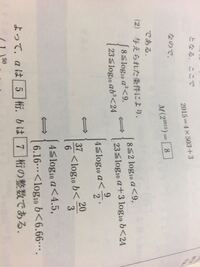 となる. ここで
2015=4×503+3
なので,
M(2²⁰¹⁵)=8
である.
(2) 与えられた条件により,
8≦log₁₀a²<9,
23≦log₁₀ab³<24
⟺ 8≦2log₁₀a<9,
23≦log₁₀a+3log₁₀b<24
⟺ 4≦log₁₀a<9/2,
37/6<log₁₀b<20/3
⟺ 4≦log₁₀a<4.5,
6.16…<log₁₀b<6.66…
よって, aは 5 桁 bは 7 桁の整数である.